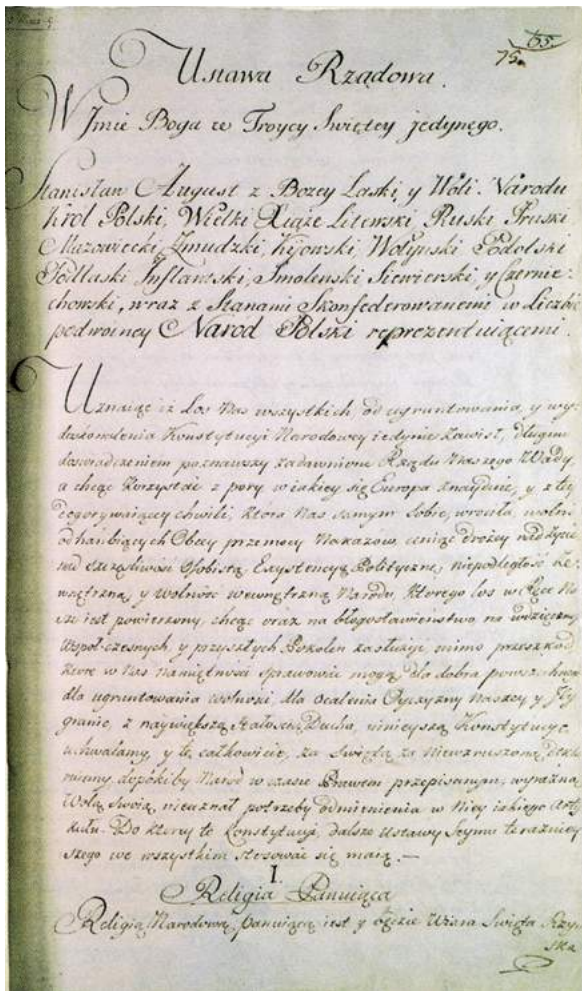 65.
75.
Ustawa Rządowa.
W Jmie Boga w Troycy Swiętey jedynego.
Stanisław August z Bozey Łaski, y Woli Narodu
Krol Polski, Wielki Xiąże Litewski, Ruski Pruski
Mazowiecki, Zmudzki, Kijowski, Wołynski Podolski
Podlaski Inflantski, Smolenski Siewierski, y Czernie-
chowski, wraz z Stanami Skonfederowanemi w Liczbie
podwoiney Narod Polski reprezentuiącemi.
Uznaiąc iż Los Nas wszystkich, od ugruntowania, y wy-
doskonalenia Konstytucyi Narodowey iedynie zawisł, długim
doswiadczeniem poznawszy zadawnione Rządu Naszego Wady
a chcąc korzystać z pory w iakiey się Europa znayduie, y z tey
dogorywaiącey chwili, ktora Nas samym Sobie, wrociła, wolni
od hanbiących Obcey przemocy Nakazow, ceniąc drożey nad życie
nad szczęsliwosc Osobistą, Exystencyą Polityczną, niepodległosć ze-
wnętrzną, y wolnosc wewnętrzną Narodu, ktorego los w Ręce Na-
sze iest powierzony, chcąc oraz na błogosławienstwo, na wdzięcznosć
Wspoł-czesnych, y przyszłych Pokolen zasłużyć, mimo przeszkod
ktore w Nas Namiętnosci sprawować mogą, dla dobra powszechnego
dla ugruntowania wolnosci, dla ocalenia Oyczyzny Naszey y Jey
granic, z naywiększą Stałoscią Ducha, ninieyszą Konstytucyę
uchwalamy, y tę całkowicie, za Swiętą za Niewzruszoną, dekla-
ruiemy, dopokiby Narod w czasie Prawem przepisanym, wyrazną
Wolą Swoią, nieuznał potrzeby odmienienia w Niey iakiego Arty-
kułu. Do ktorey to Konstytucyi, dalsze Ustawy Seymu terazniey-
szego we wszystkim stosować się maią.—
I.
Religia Panuiąca
Religią Narodową, panuiącą iest y będzie Wiara Swięta Rzym-
ska